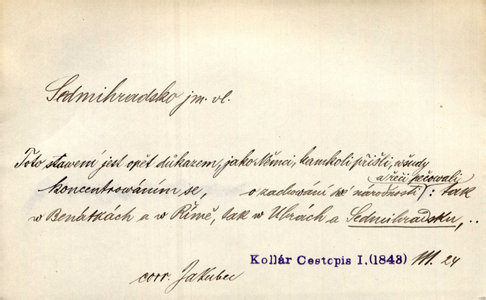 Sedmihradsko jm. vl.
Toto stawení jest opět důkazem, jako Němci, kamkoli přišli, wšudy
a řeči pečowali
koncentrowáním se, o zachowání swé národnosti : tak
w Benátkách a w Římě, tak w Uhrách a Sedmihradsku, ..
Kollár Cestopis I. (1843) 111. 24
corr. Jakubec